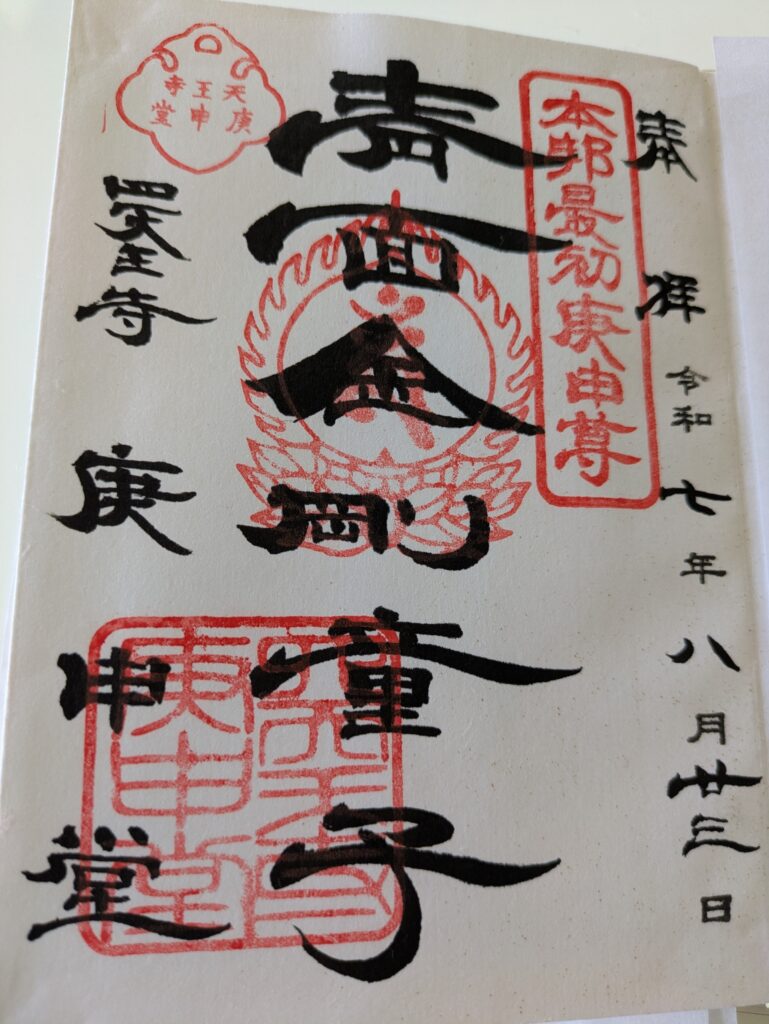 奉拝 令和七年八月廿三日
本邦最初庚申尊
青面金剛童子
天王寺
庚申堂
四天王寺 庚申堂
四天王寺
庚申堂